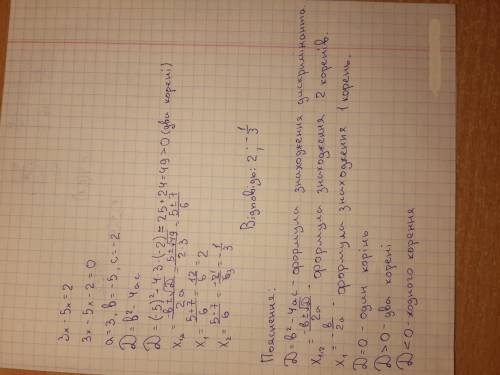 3x - 5x = 2
3x - 5x - 2 = 0
a = 3, b = -5, c = -2
D = b² - 4ac
D = (-5)² - 4·3·(-2) = 25 + 24 = 49 > 0 (два корені)
x₁,₂ = (-b ± √D)/2a = (5 ± √49)/2·3 = (5 ± 7)/6
x₁ = (5 + 7)/6 = 12/6 = 2
x₂ = (5 - 7)/6 = -2/6 = -1/3
Відповідь: 2; -1/3
Пояснення:
D = b² - 4ac - формула знаходження дискримінанта
x₁/₂ = (-b ± √D)/2a - формула знаходження 2 коренів.
x₁ = -b/2a - формула знаходження 1 корень.
D = 0 - один корінь
D > 0 - два корені
D < 0 - жодного кореня